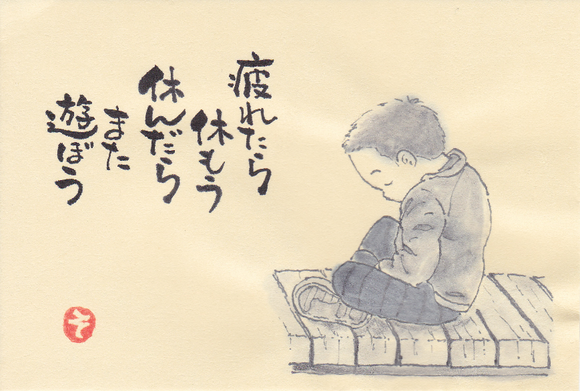 疲れたら
休もう
休んだら
また
遊ぼう
そ